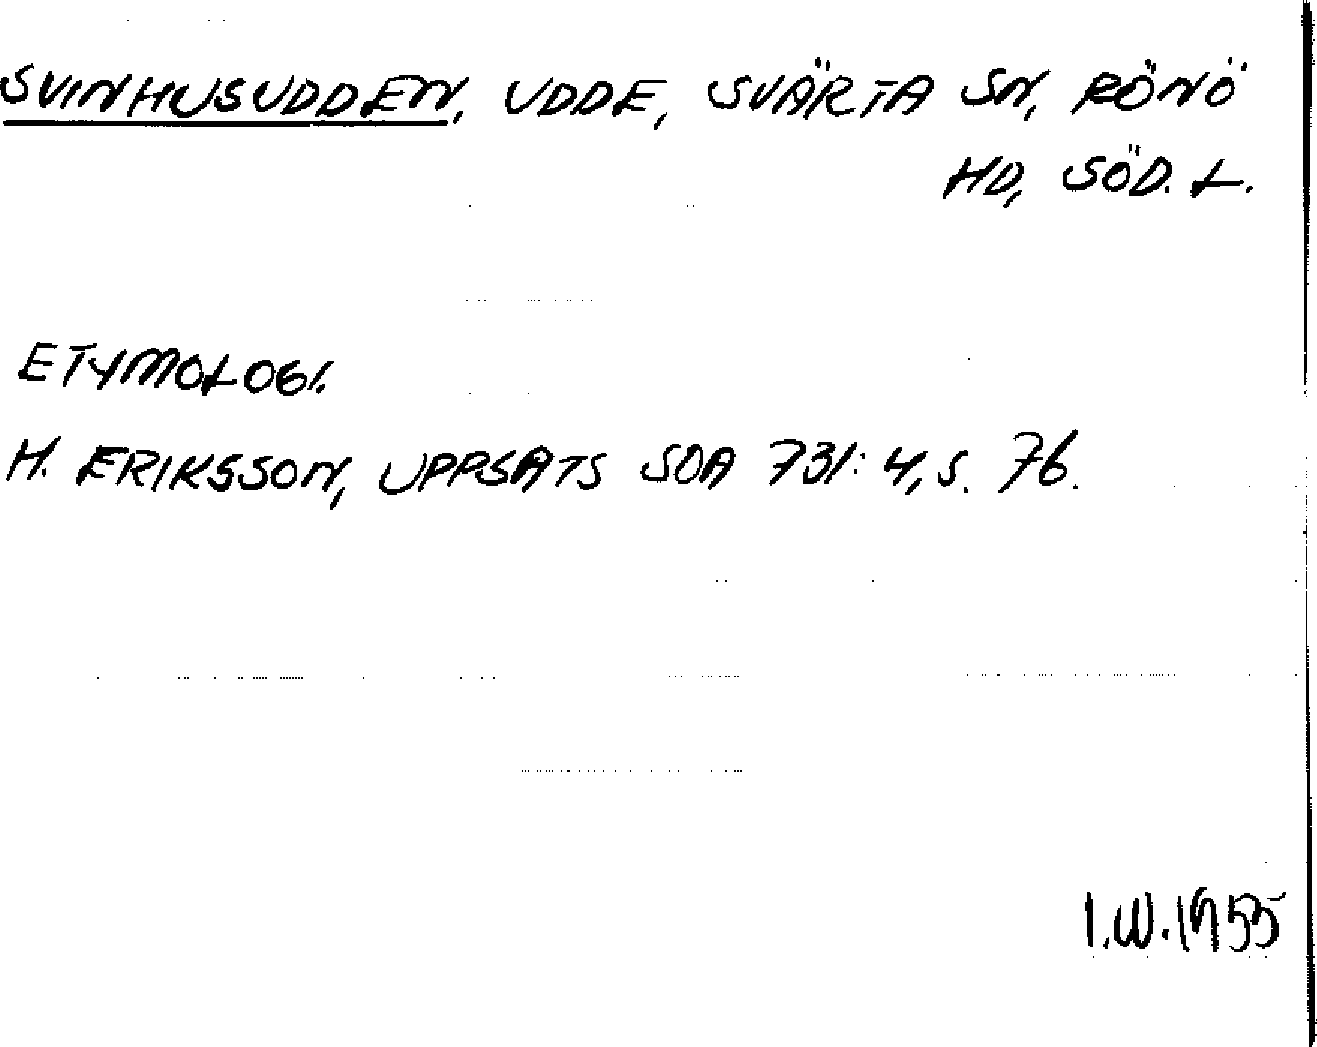 SVINHUSUDDEN, UDDE, SVÄRTA SN, RÖNÖ
HD, SÖD. L.
ETYMOLOGI.
H. ERIKSSON, UPPSATS SOA 731:4, S. 76.
I.W. 1955